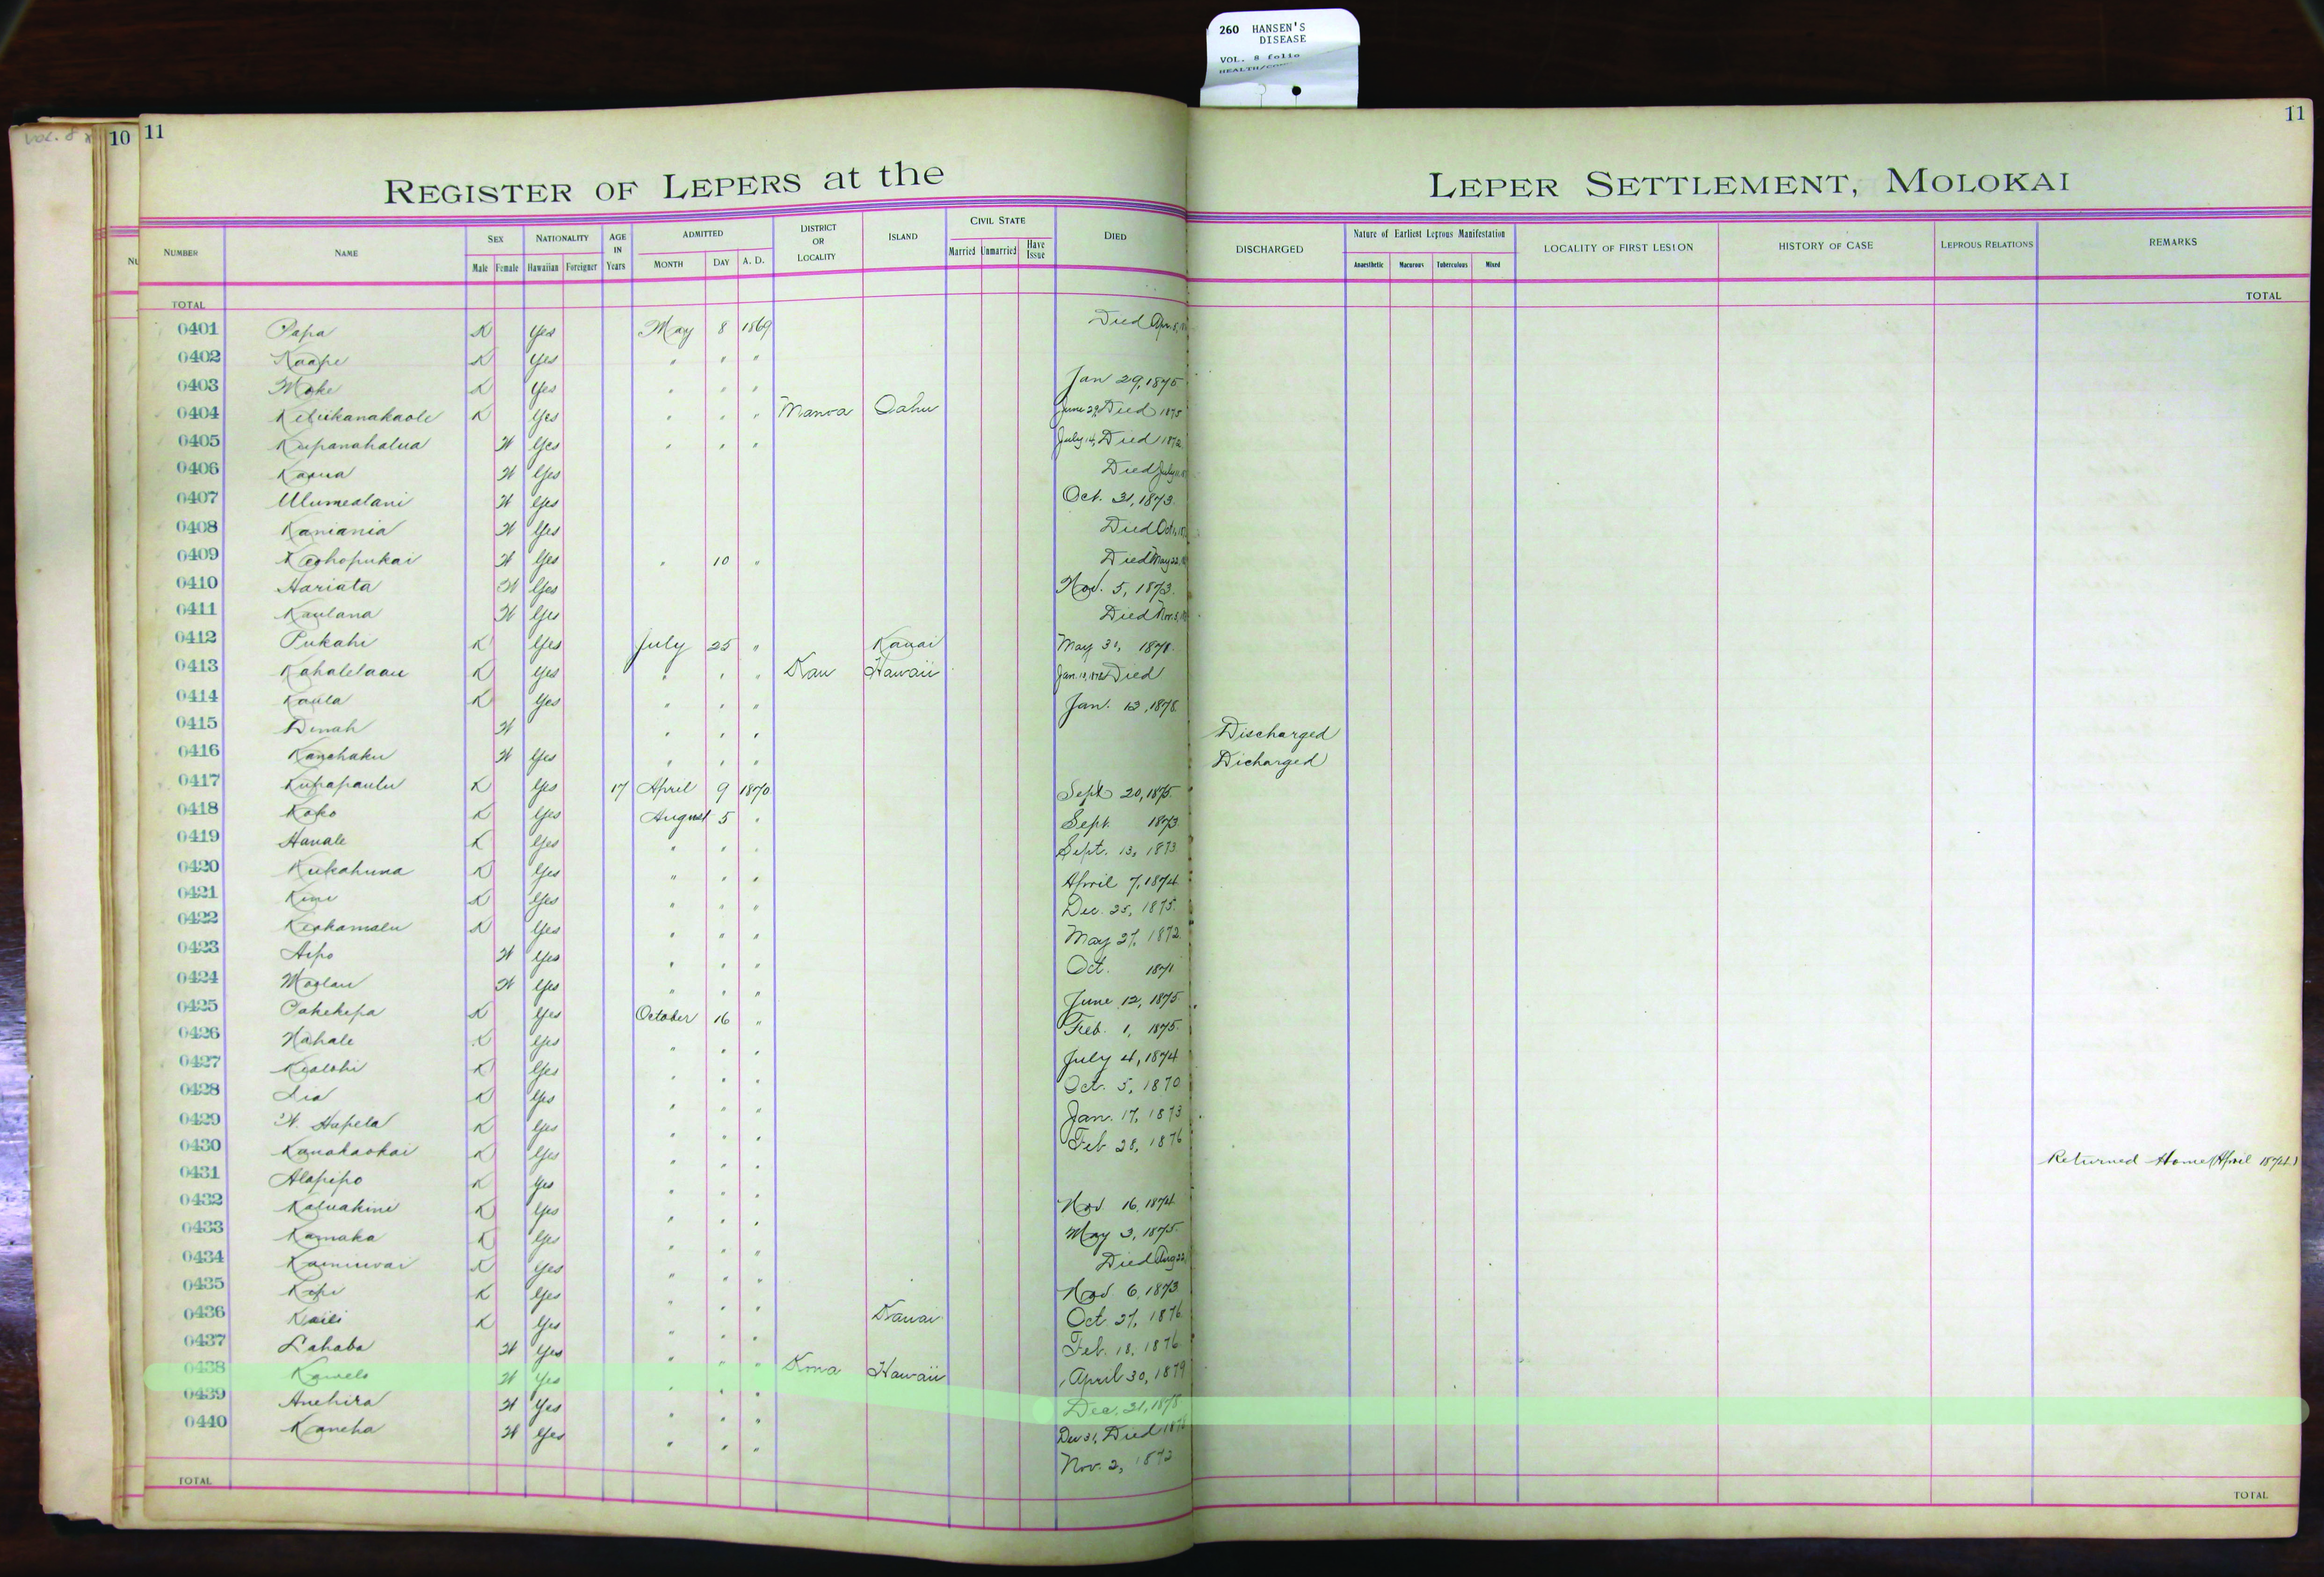 260 HANSEN'S
DISEASE
VOL. 8 folio
VOL. 8
10 11
11
REGISTER OF LEPERS at the LEPER SETTLEMENT, MOLOKAI
NUMBER NAME SEX NATIONALITY AGE IN Years ADMITTED DISTRICT OR LOCALITY ISLAND CIVIL STATE DIED DISCHARGED Nature of Earliest Leprous Manifestation LOCALITY OF FIRST LESION HISTORY OF CASE LEPROUS RELATIONS REMARKS
Male Female Hawaiian Foreigner MONTH DAY A. D. Married Unmarried Have Issue Anaesthetic Macurous Tuberculous Mixed
TOTAL TOTAL
0401 Papa K Yes May 8 1869 Died Apr. 8,
0402 Kaape K Yes " " "
0403 Moke K Yes " " " Jan 29, 1875
0404 Keliikanakaole K Yes " " " Manoa Oahu June 29, Died 1875
0405 Kupanahalua W Yes " " " July 14, Died 1872
0406 Kaaua W Yes Died July
0407 Ulumealani W Yes Oct. 31, 1873.
0408 Kaniania W Yes Died Oct
0409 Keohopukai W Yes " 10 " Died May 22,
0410 Hariata W Yes Nov. 5, 1873.
0411 Kaulana W Yes Died Nov. 3,
0412 Pukahi K Yes July 25 " Kauai May 31, 1878.
0413 Kahalelaau K Yes " " " Kau Hawaii Died
0414 Kaula K Yes " " " Jan. 13, 1878.
0415 Dinah W " " " Discharged
0416 Kanehaku W Yes " " " Dicharged
0417 Kupapaulu K Yes 17 April 9 1870 Sept 20, 1875.
0418 Koko K Yes August 5 " Sept. 1873
0419 Hanale K Yes " " " Sept. 13, 1873
0420 Kukahuna K Yes " " " April 7, 1874
0421 Kini K Yes " " " Dec. 25, 1875.
0422 Keokamalu K Yes " " " May 27, 1872
0423 Aipo W Yes " " " Oct. 1871
0424 Moolau W Yes " " " June 12, 1875
0425 Pakekepa K Yes October 16 " Feb. 1, 1875.
0426 Nahale K Yes " " " July 4, 1874
0427 Kealohi K Yes " " " Oct. 5, 1870
0428 Lia K Yes " " " Jan. 17, 1873
0429 W. Hapela K Yes " " " Feb 28, 1876
0430 Kanakaokai K Yes " " " Returned Home (April 1874.)
0431 Alapipo K Yes " " " Nov 16, 1874
0432 Kaluakini K Yes " " " May 3, 1875.
0433 Kamaka K Yes " " " Died Aug 22,
0434 Kainuwai K Yes " " " Nov. 6, 1873
0435 Kepi K Yes " " " Oct 27, 1876
0436 Kaili K Yes " " " Kauai Feb. 18, 1876
0437 Lahaba W Yes " " " Kona Hawaii April 30, 1879
0438 Kawelo W Yes " " " Dec. 31, 1878
0439 Anehira W Yes " " " Dec 31, Died 1878
0440 Kaneha W Yes " " " Nov. 2, 1872
TOTAL TOTAL